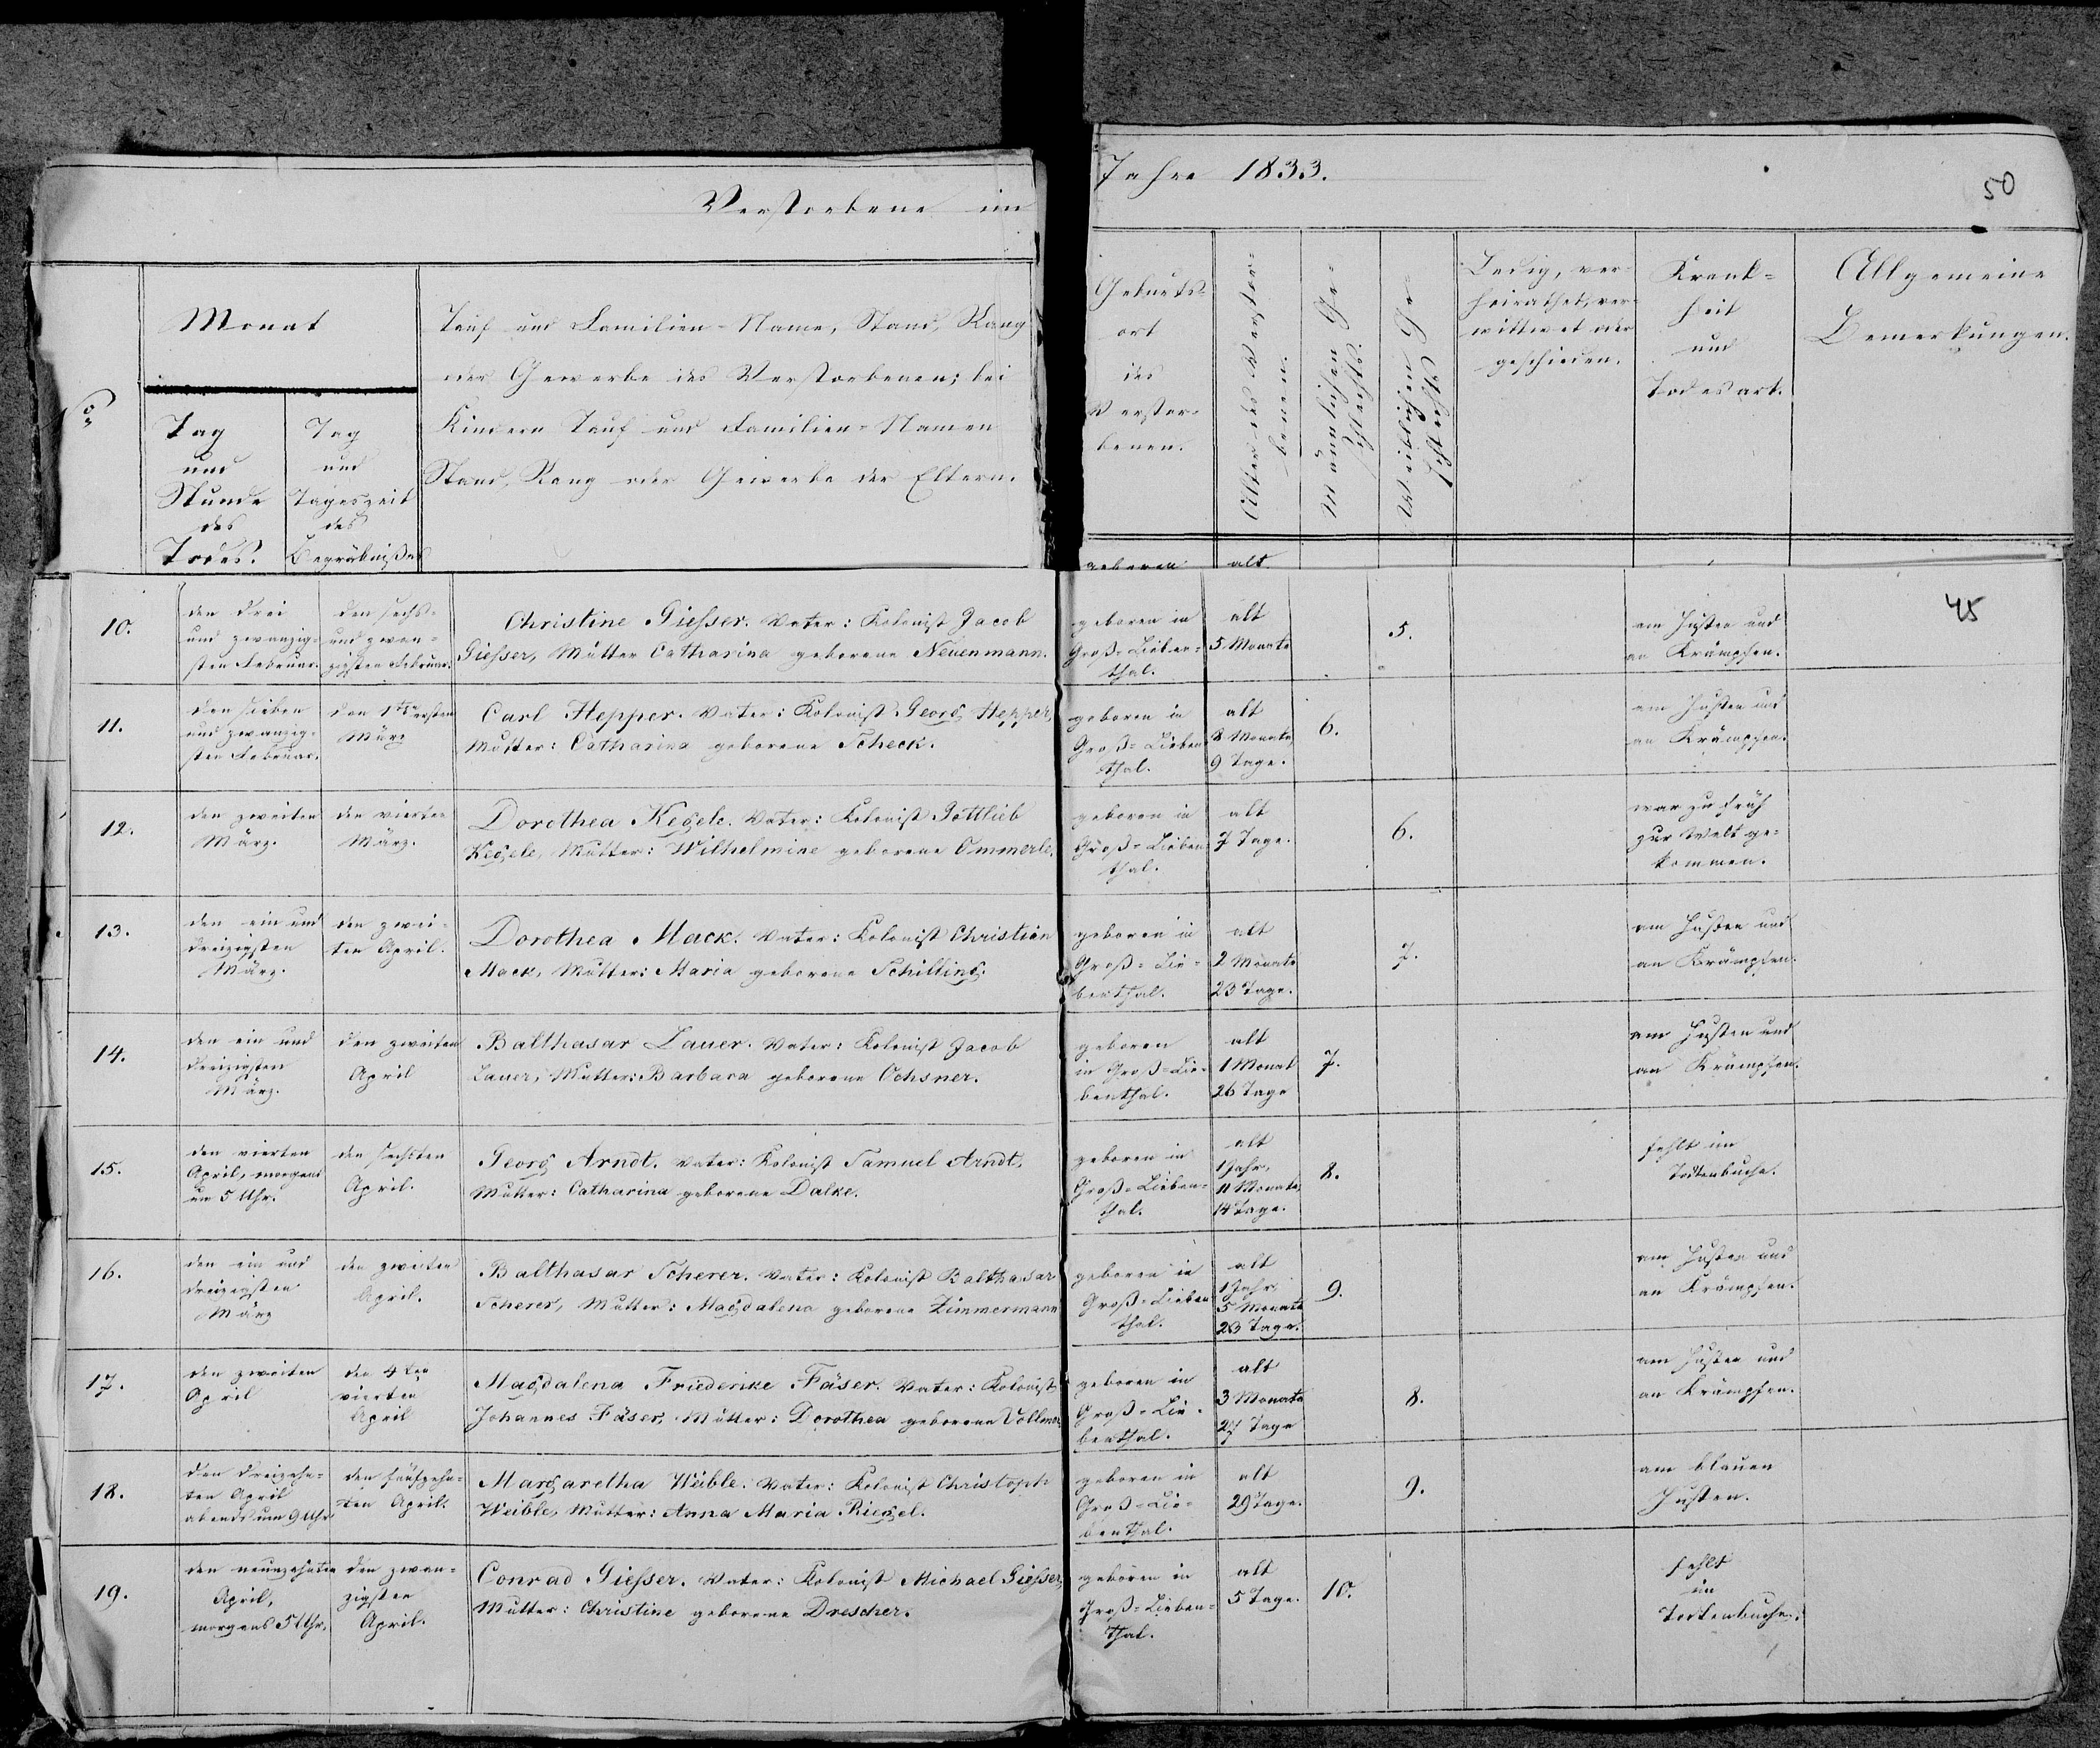 Verstorbene im
Jahre 1833.
50
No
Monat
Tag
und
Stunde
des
Todes.
Tag
und
Tageszeit
des
Begräbnißes
Tauf und Familien-Name, Stand, Rang
oder Gewerbe des Verstorbenen; bei
Kindern Tauf und Familien-Namen
Stand, Rang oder Gewerbe der Eltern.
Geburts-
ort
des
Verstor-
benen.
Alter des Verstor-
benen.
Männlichen Ge-
schlechts.
Weiblichen Ge-
schlechts
Ledig, ver-
heirathet, ver-
wittwet oder
geschieden.
Krank-
heit
und
Todesart.
Allgemeine
Bemerkungen.
geboren
alt
45
10.
den drei
und zwanzig-
sten Februar.
den sechs-
und zwan-
zigsten Februar.
Christine Giesser. Vater: Kolonist Jacob
Giesser, Mutter Catharina geborene Neuenmann.
geboren in
Groß-Lieben-
thal.
alt
5 Monate
5.
am Husten und
an Krämpfen.
11.
den sieben
und zwanzig-
sten Februar.
den 1ten ersten
März
Carl Hepper. Vater: Kolonist Georg Hepper,
Mutter: Catharina geborene Scheck.
geboren in
Groß-Lieben
thal.
alt
8 Monate
9 Tage.
6.
am Husten und
an Krämpfen.
12.
den zweiten
März.
den vierten
März.
Dorothea Kegele. Vater: Kolonist Gottlieb
Kegele, Mutter: Wilhelmine geborene Ommerle.
geboren in
Groß-Lieben
thal.
alt
7 Tage.
6.
war zu früh
zur Welt ge-
kommen.
13.
den ein und
dreizigsten
März.
den zwei-
ten April.
Dorothea Mack. Vater: Kolonist Christian
Mack, Mutter: Maria geborene Schilling.
geboren in
Groß-Lie-
benthal.
alt
2 Monate
23 Tage.
7.
am Husten und
an Krämpfen.
14.
den ein und
dreizigsten
März.
den zweiten
April
Balthasar Lauer. Vater: Kolonist Jacob
Lauer, Mutter: Barbara geborene Ochsner.
geboren
in Groß-Lie-
benthal.
alt
1 Monat
26 Tage
7.
am Husten und
an Krämpfen.
15.
den vierten
April, morgens
um 5 Uhr.
den sechsten
April.
Georg Arndt. Vater: Kolonist Samuel Arndt,
Mutter: Catharina geborene Dalke.
geboren in
Groß-Lieben-
thal.
alt
1 Jahr,
11 Monate,
14 Tage.
8.
fehlt im
Todtenbuche.
16.
den ein und
dreizigsten
März
den zweiten
April.
Balthasar Scherer. Vater: Kolonist Balthasar
Scherer, Mutter: Magdalena geborene Zimmermann
geboren in
Groß-Lieben
thal.
alt
1 Jahr,
5 Monate
23 Tage.
9.
am Husten und
an Krämpfen.
17.
den zweiten
April
den 4ten
vierten
April
Magdalena Friederike Fäser. Vater: Kolonist
Johannes Fäser, Mutter: Dorothea geborene Vollmer
geboren in
Groß-Lie-
benthal.
alt
3 Monate
27 Tage
8.
am Husten und
an Krämpfen.
18.
den dreizehn-
ten April
abends um 9 Uhr.
den fünfzehn-
ten April.
Margaretha Weible. Vater: Kolonist Christoph
Weible, Mutter: Anna Maria Riegel.
geboren in
Groß-Lie-
benthal.
alt
29 Tage.
9.
am blauen
Husten.
19.
den neunzehnten
April,
morgens 5 Uhr.
den zwan-
zigsten
April.
Conrad Giesser. Vater: Kolonist Michael Giesser,
Mutter: Christine geborene Drescher.
geboren in
Groß-Lieben-
thal.
alt
5 Tage.
10.
fehlt
im
Todtenbuche.